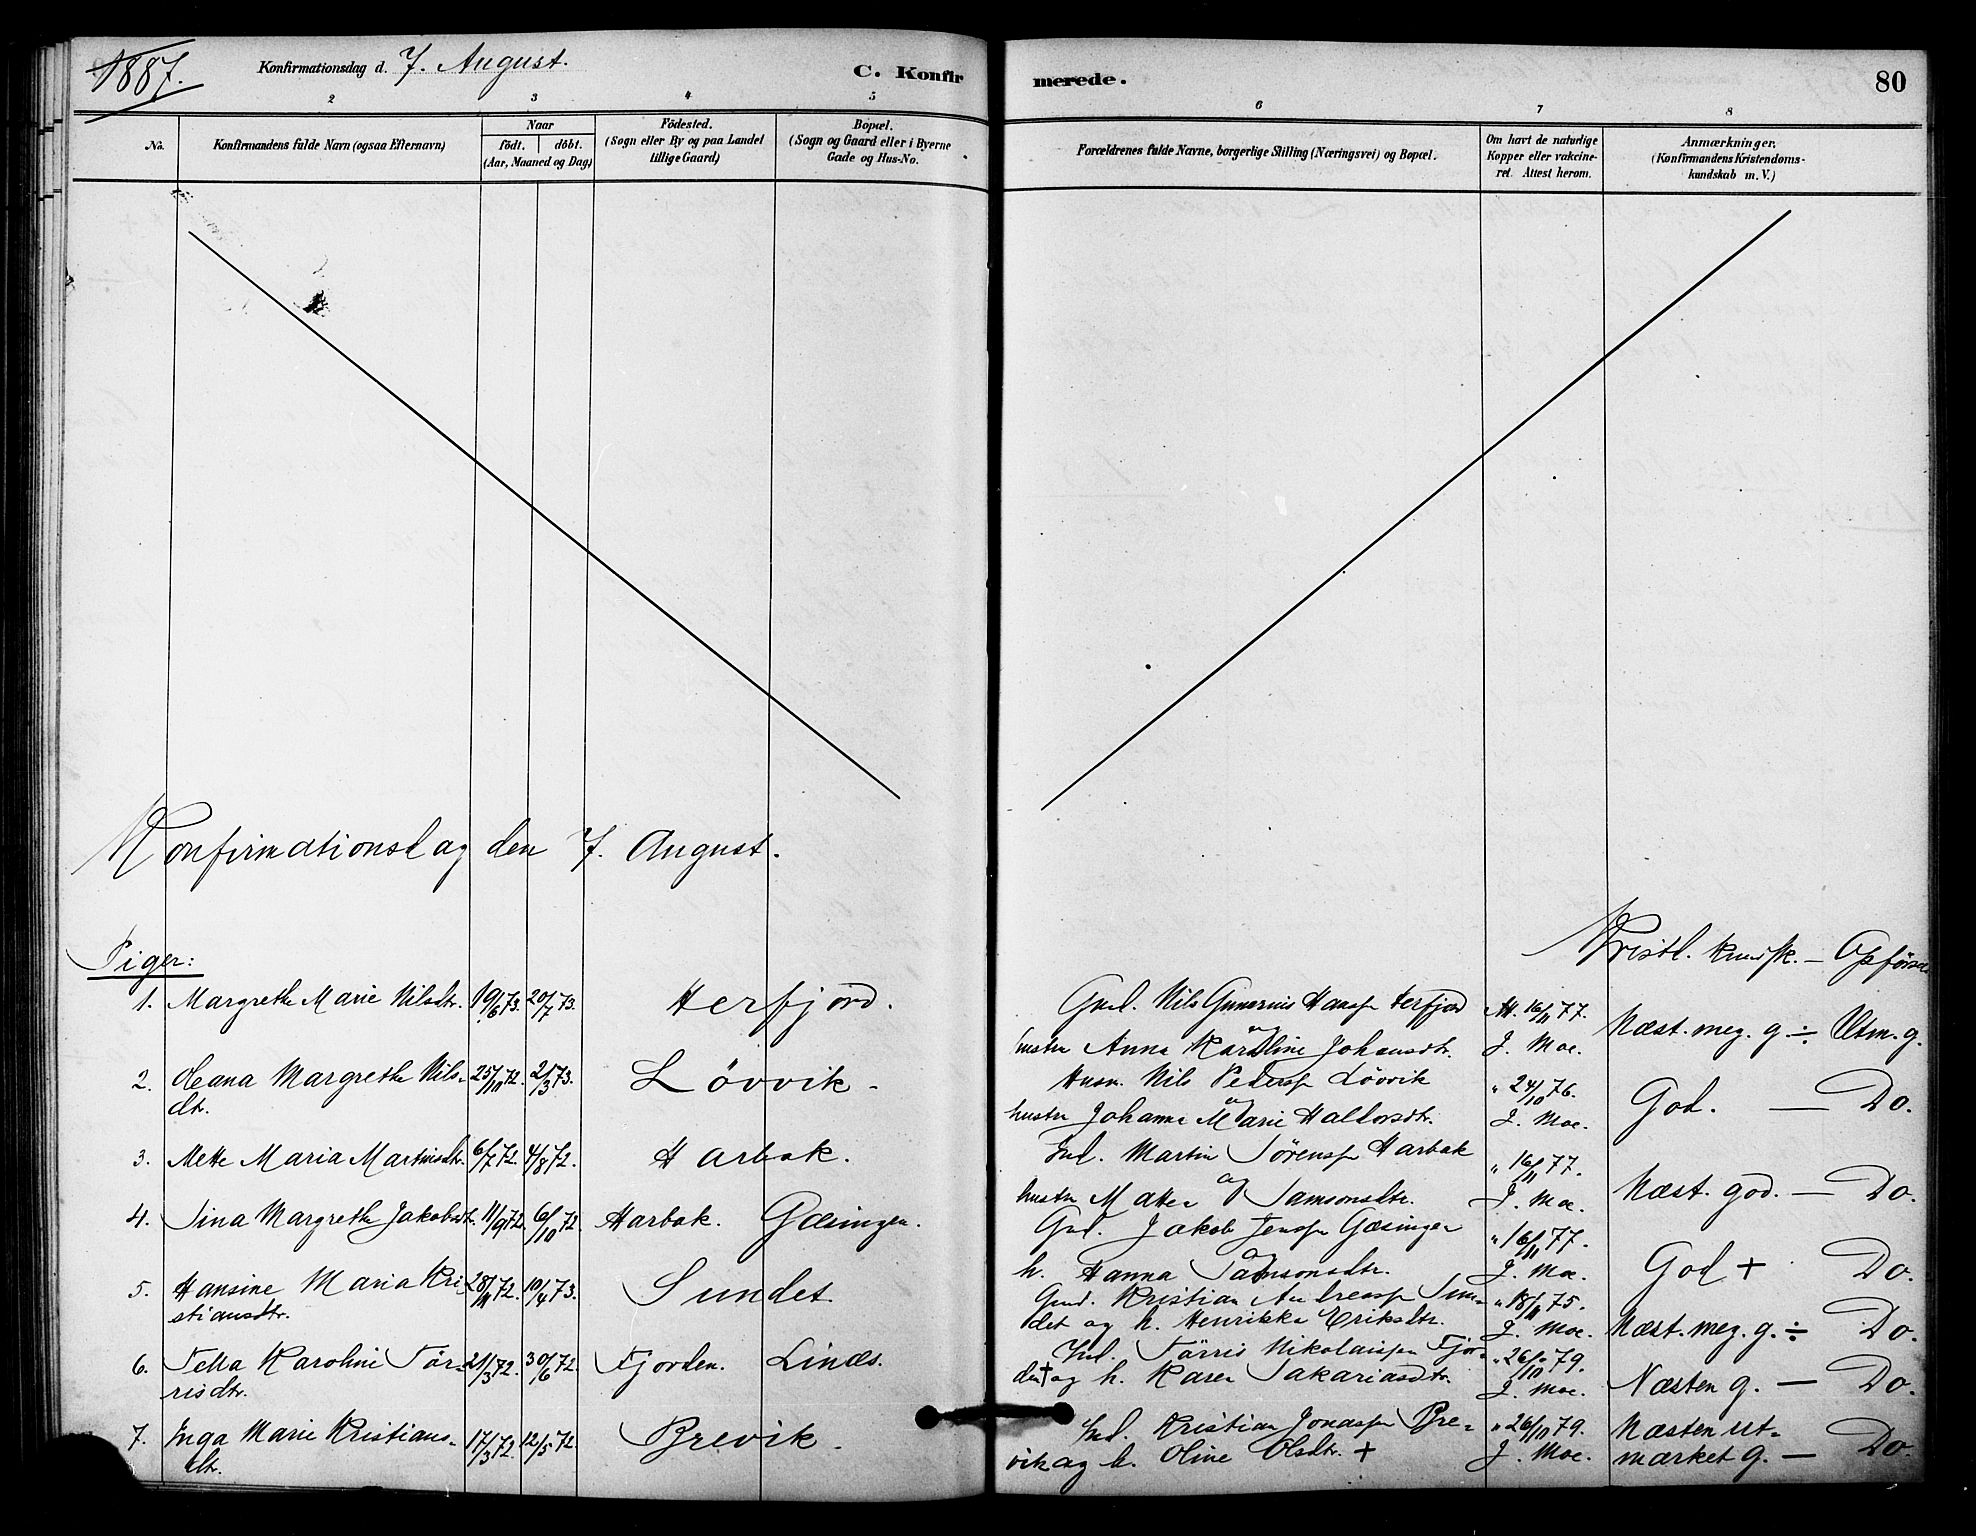 1887.
Konfirmationsdag d. 7. August.
C. Konfirmerede.
80
2 3 4 5 6 7 8
No.
Konfirmandens fulde Navn (ogsaa Efternavn)
Naar
født. døbt.
(Aar, Maaned og Dag)
Fødested.
(Sogn eller By og paa Landet
tillige Gaard)
Bopæl.
(Sogn og Gaard eller i Byerne
Gade og Hus-No.
Forældrenes fulde Navne, borgerlige Stilling (Næringsvei) og Bopæl.
Om havt de naturlige
Kopper eller vakcine-
ret. Attest herom.
Anmærkninger,
(Konfirmandens Kristendoms-
kundskab m. V.)
Konfirmationsdag den 7. August.
Kristl. kundsk. – Opførsel
Piger:
1. Margrethe Marie Nilsdtr. 19/6 73. 20/7 73. Herfjord. Gml. Nils Gunerius Hansen Herfjord At. 16/11 77.
og
hustru Anna Karoline Johansdtr. J. Moe. Næst. meg. g ÷ Utm. g.
2. Leana Margrethe Nils- 25/10 72. 2/3 73. Løvvik – Husm. Nils Pedersen Løvvik " 24/10 76.
dtr. og
hustru Johanna Marie Haldorsdtr. J. Moe. God. — Do.
3. Mette Maria Martinsdtr. 6/7 72. 4/8 72. Harbak. Ind. Martin Sørensen Harbak " 16/11 77.
og
hustru Mattea Samsonsdtr. J. Moe. Næst. god. — Do.
4. Sina Margrethe Jakobsdtr. 11/9 72. 6/10 72. Harbak. Gæsingen. Gml. Jakob Jensen Gæsingen " 16/11 77.
og
h. Hanna Samsonsdtr. J. Moe. God + Do.
5. Hansine Maria Kri- 28/11 72. 10/4 73. Sundet. Gmd. Kristian Andreassen Sun- " 18/11 75.
stiansdtr. det og h. Henrikke Eriksdtr. J. Moe. Næst. meg. g. ÷ Do.
6. Tella Karoline Tør- 21/3 72. 30/6 72. Fjorden. Linæs. Ind. Tørris Nikolaissen Fjor- " 26/10 79.
risdtr. den + og h. Karen Sakariasdtr. J. Moe. Næsten g. — Do.
7. Inga Marie Kristians- 17/3 72. 12/5 72. Brevik. Ind. Kristian Jonassen Bre- " 26/10 79. Næsten ut-
dtr. vik og h. Oline Olsdtr. + J. Moe. mærket g. — Do.